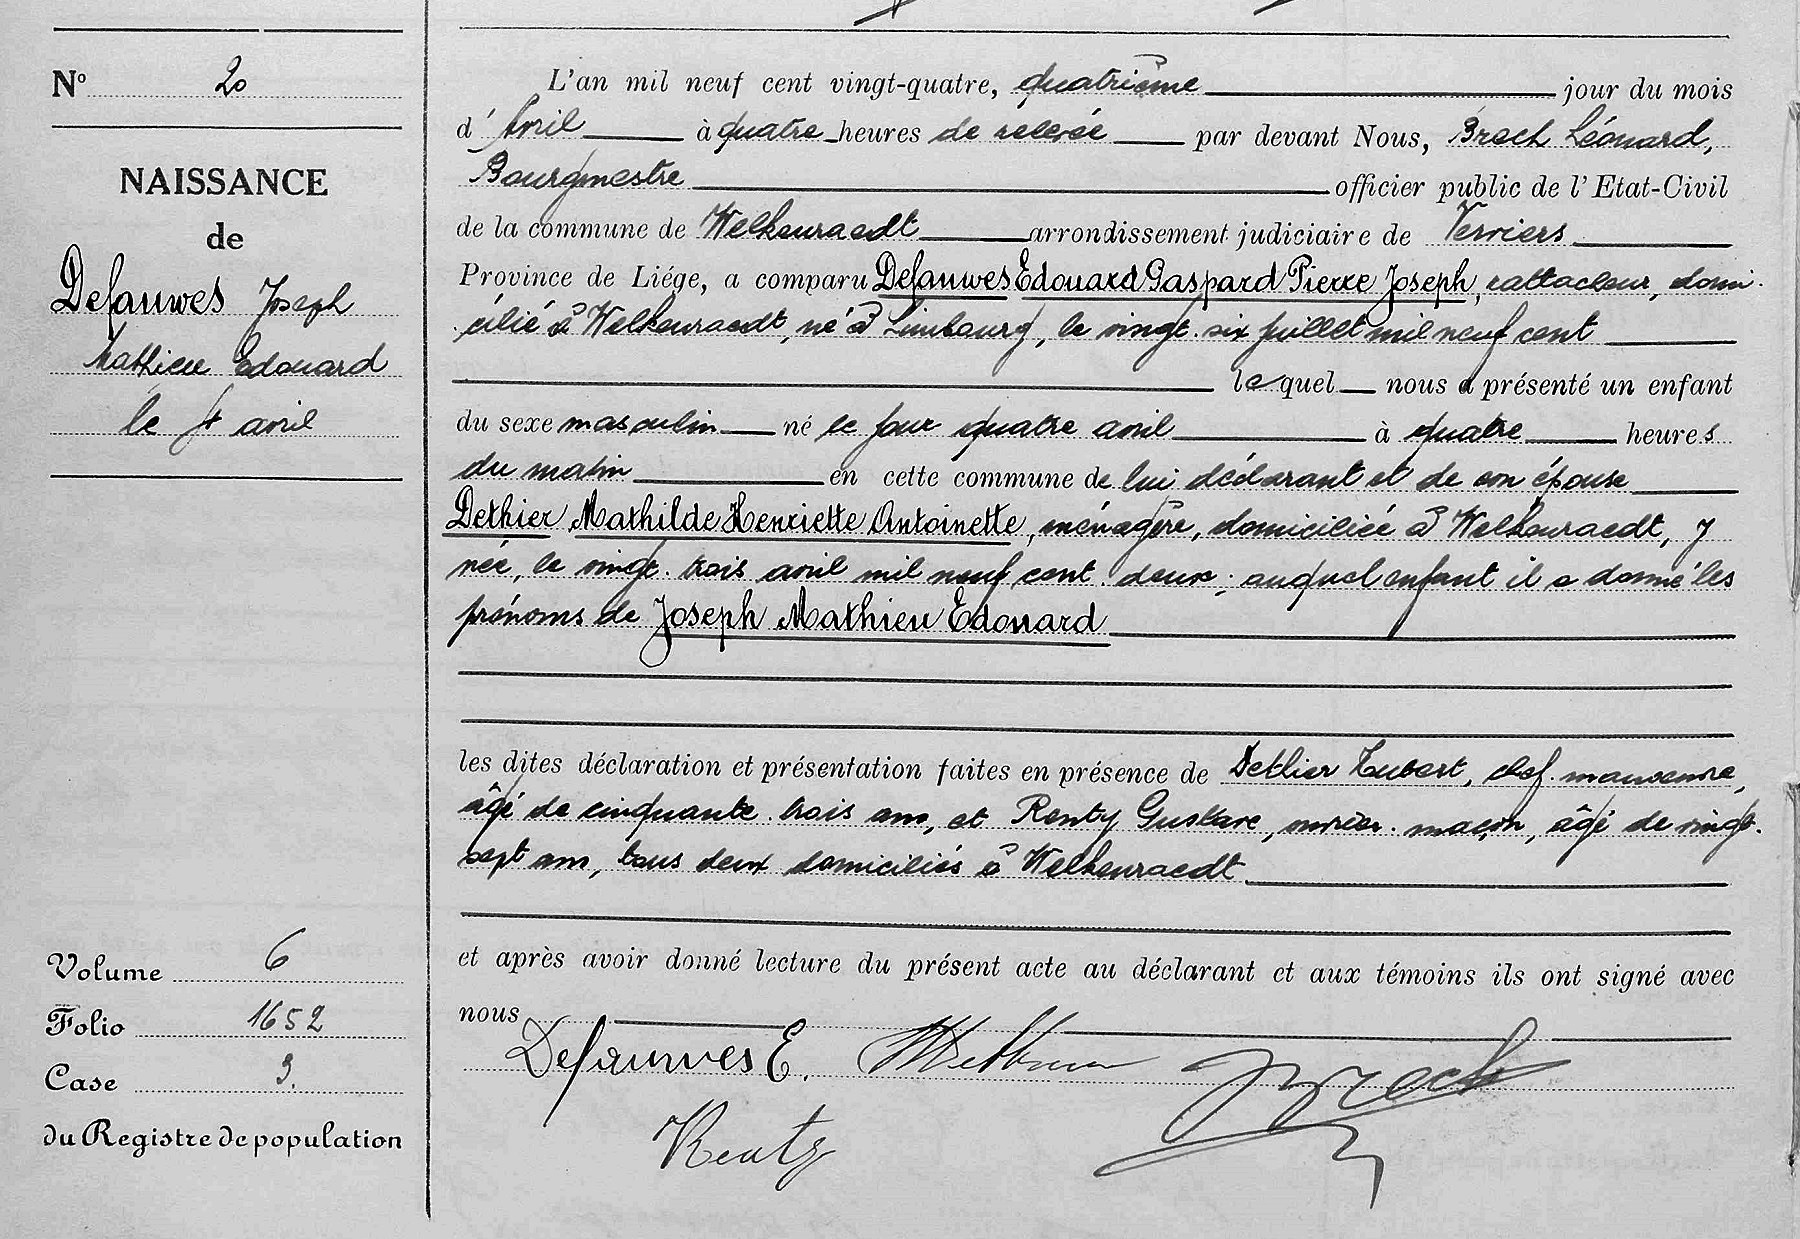 Nº 20
NAISSANCE
de
Defauwes Joseph
Mathieu Edouard
le 4 avril
Volume 6
Folio 1652
Case 3.
du Registre de population
L'an mil neuf cent vingt-quatre, quatrième jour du mois
d'Avril à quatre heures de relevée par devant Nous, Broch Léonard,
Bourgmestre officier public de l'Etat-Civil
de la commune de Welkenraedt arrondissement judiciaire de Verviers
Province de Liége, a comparu Defauwes Edouard Gaspard Pierre Joseph, rattacheur, domi-
cilié à Welkenraedt, né à Limbourg, le vingt-six juillet mil neuf cent
lequel nous a présenté un enfant
du sexe masculin né ce jour quatre avril à quatre heures
du matin en cette commune de lui déclarant et de son épouse
Dethier Mathilde Henriette Antoinette, ménagère, domiciliée à Welkenraedt, y
née, le vingt-trois avril mil neuf cent deux; auquel enfant il a donné les
prénoms de Joseph Mathieu Edouard
les dites déclaration et présentation faites en présence de Dethier Hubert, chef-manoeuvre,
âgé de cinquante-trois ans, et Renty Gustave, ouvrier-maçon, âgé de vingt-
sept ans, tous deux domiciliés à Welkenraedt
et après avoir donné lecture du présent acte au déclarant et aux témoins ils ont signé avec
nous
Defauwes E.
Broch